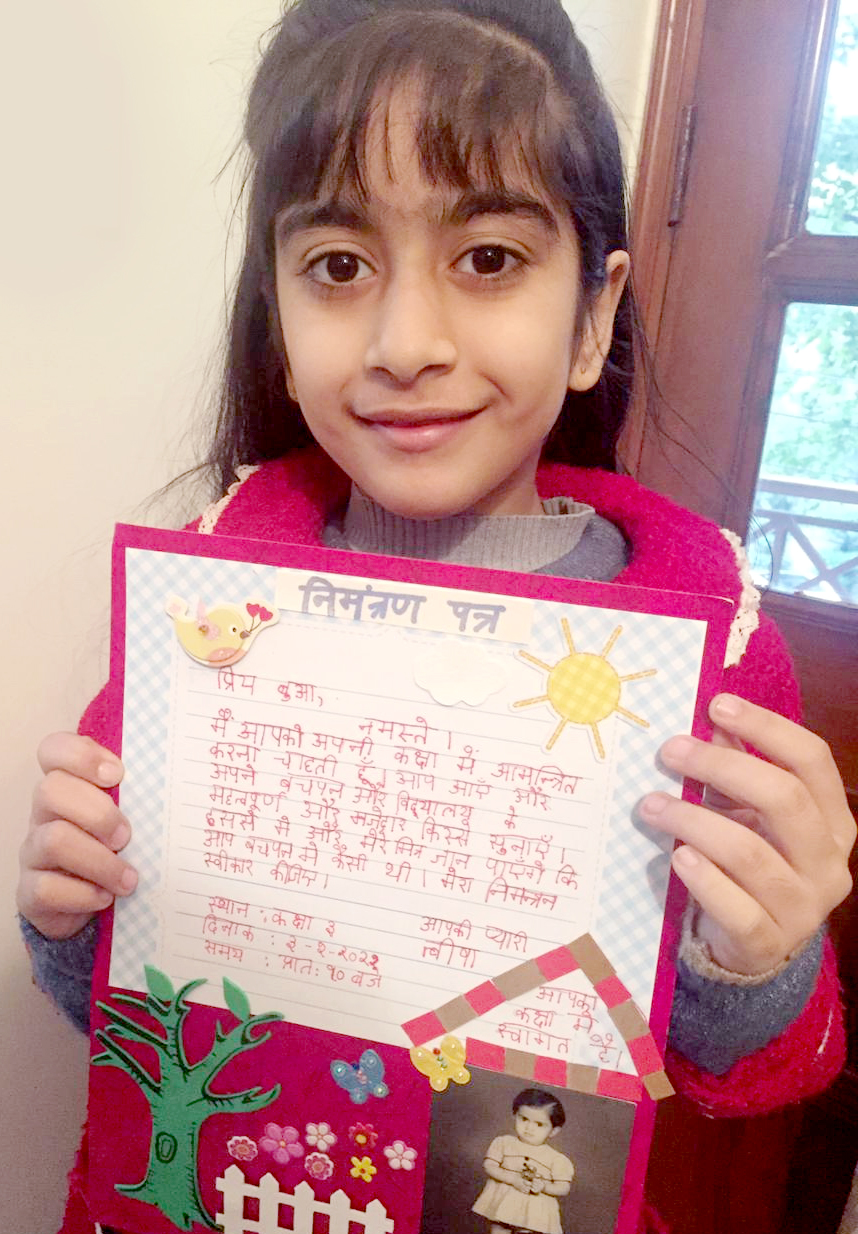 निमंत्रण पत्र
प्रिय बुआ,
नमस्ते।
मैं आपको अपनी कक्षा में आमन्त्रित
करना चाहती हूँ। आप आएँ और
अपने बचपन और विद्यालय के
महत्वपूर्ण और मजेदार किस्से सुनाएँ।
इससे मे और मेरे मित्र जान पाएँगे कि
आप बचपन में कैसी थी। मेरा निमन्त्रन
स्वीकार कीजिए।
स्थान : कक्षा ३
दिनाक : ३-२-२०२२
समय : प्रात: १० बजे
आपकी प्यारी
आपका
कक्षा में
स्वागत है।